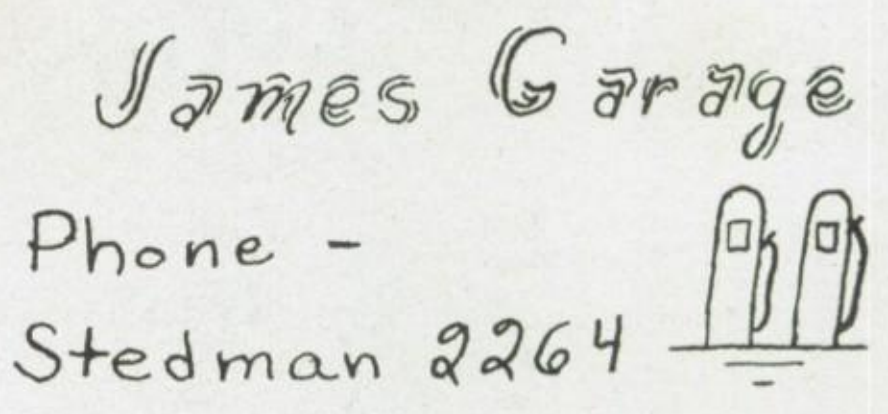 James Garage
Phone -
Stedman 2264